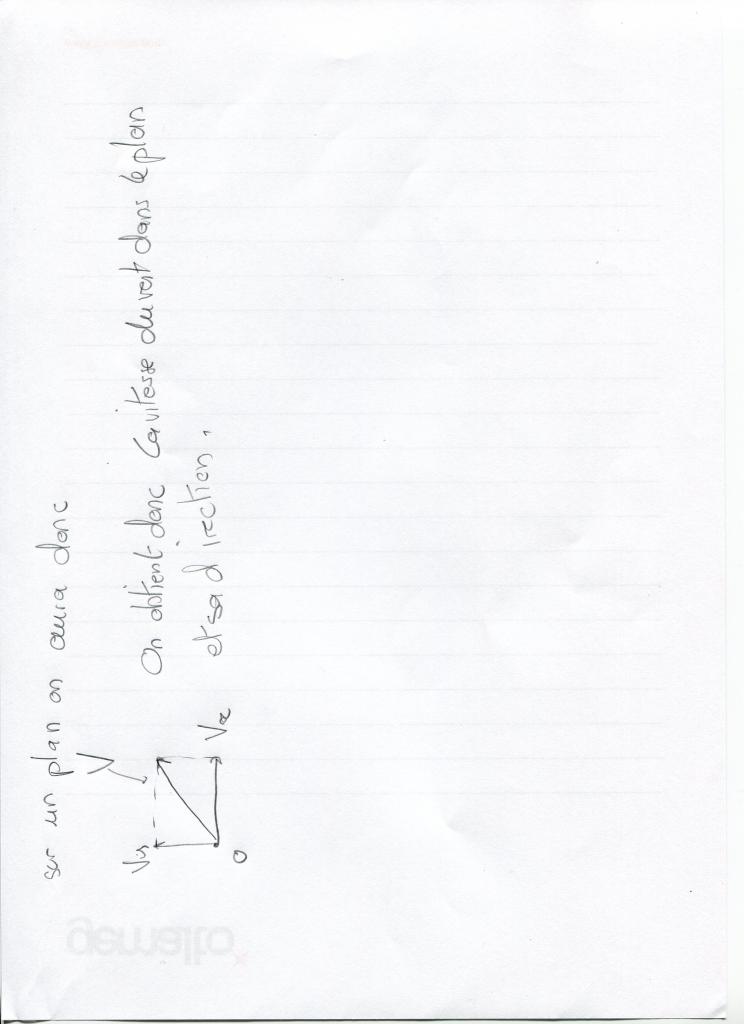 sur un plan on aura donc
V
Vy
On obtient donc la vitesse du vent dans le plan
et sa direction.
Vx
O
gemalto